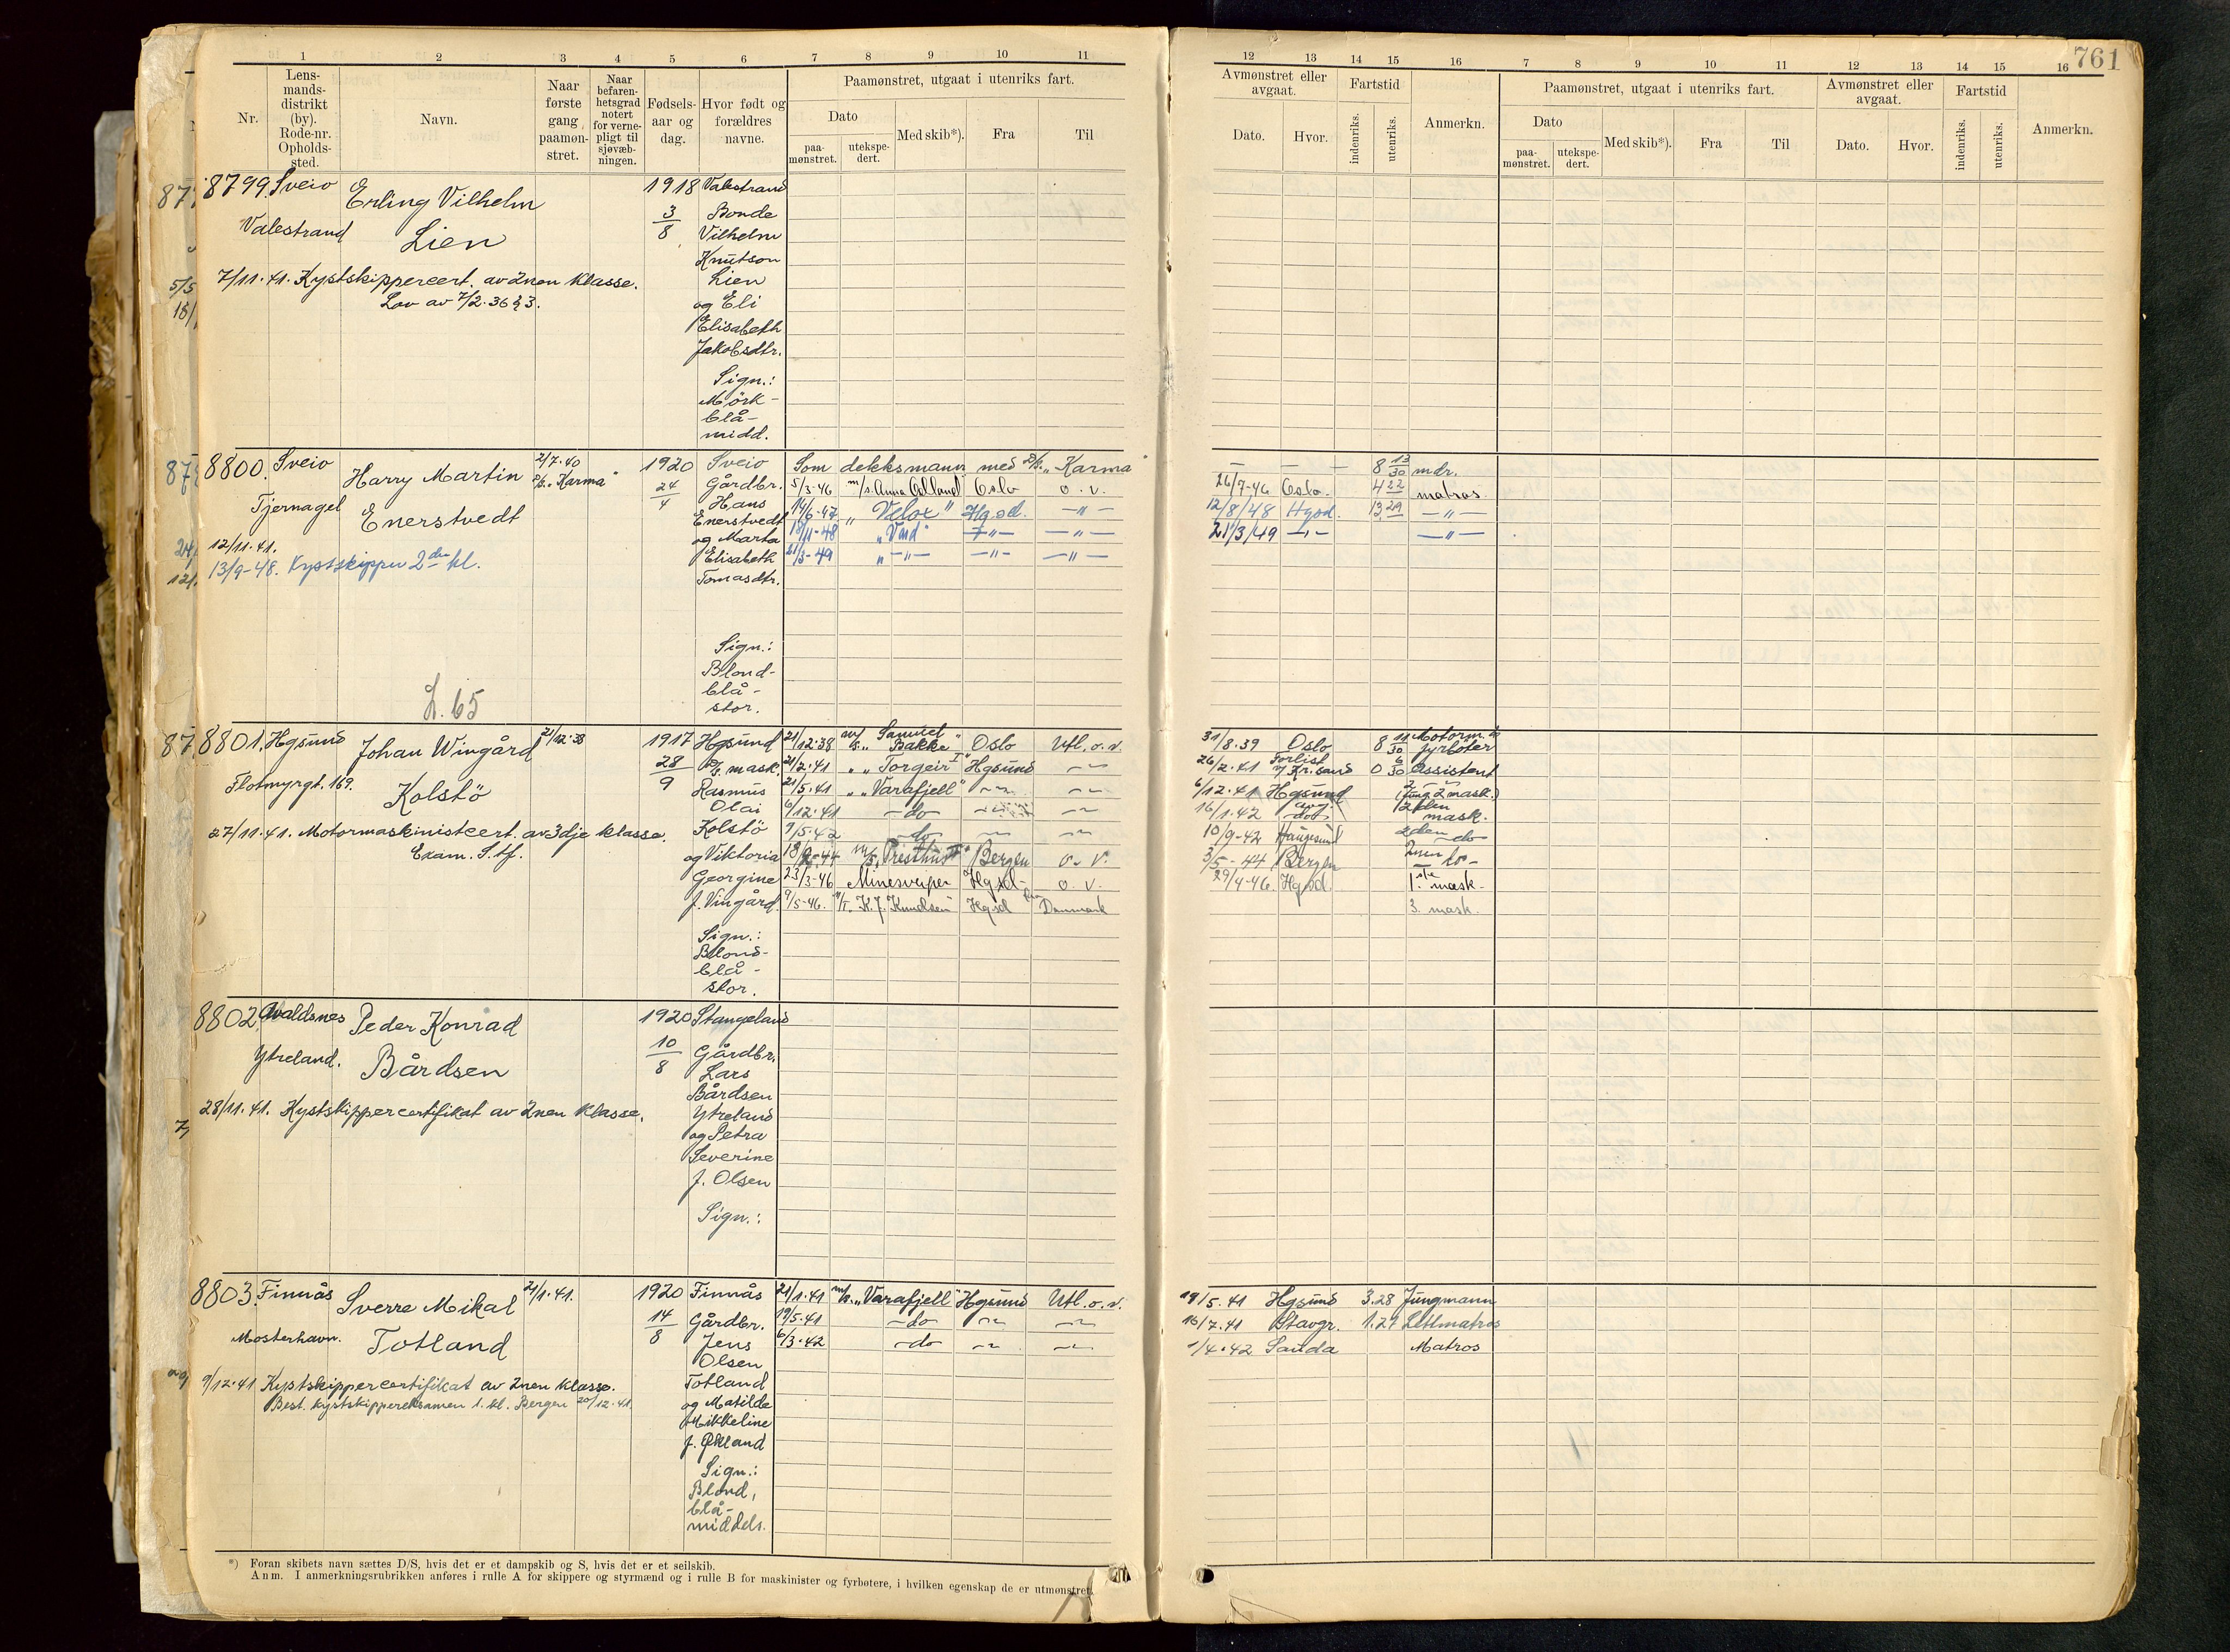 761
1 2 3 4 5 6 7 8 9 10 11
Nr.
Lens-
mands-
distrikt
(by).
Rode-nr.
Opholds-
sted.
Navn.
Naar
første
gang
paamøn-
stret.
Naar
befaren-
hetsgrad
notert
for verne-
pligt til
sjøvæb-
ningen.
Fødsels-
aar og
dag.
Hvor født og
forældres
navne.
Paamønstret, utgaat i utenriks fart.
Dato
paa-
mønstret.
utekspe-
dert.
Med skib*).
Fra
Til
12 13 14 15 16 7 8 9 10 11 12 13 14 15 16
Avmønstret eller
avgaat.
Dato.
Hvor.
Fartstid
indenriks.
utenriks.
Anmerkn.
Paamønstret, utgaat i utenriks fart.
Dato
paa-
mønstret.
utekspe-
dert.
Med skib*).
Fra
Til
Avmønstret eller
avgaat.
Dato.
Hvor.
Fartstid
indenriks.
utenriks.
Anmerkn.
8799. Sveio
Valestrand
Erling Vilhelm
Lien
7/11.41. Kystskippercert. av 2nen klasse.
Lov av 7/2.36 § 3.
1918
3/8
Valestrand
Bonde
Vilhelm
Knutson
Lien
og Eli
Elisabeth
Jakobsdtr.
Sign.:
Mörk-
blå-
midd.
8800. Sveio
Tjernagel
Harry Martin
Enerstvedt
2/7.40
"Karma"
12/11.41.
13/9-48. Kystskipper 2den kl.
L. 65
1920
24/4
Sveio
Gårdbr.
Hans
Enerstvedt
og Marta
Elisabeth
Tomasdtr.
Sign.:
Blond-
blå-
stor.
Som dekksmann med "Karma" — — — 8 13/30 mdr.
5/3-46 m/s. Anna Odland Oslo o.v. 26/7-46 Oslo. 4 22 matros.
14/6-47 " Velox " Hgsd. —"— 12/8/48 Hgsd. 13 29 —"—
18/11-48 "Vard" —"— —"— 21/3/49 —"— —"—
21/3-49 "—"— —"— —"—
8801. Hgsund
Flotmyrgt. 169.
Johan Wingård
Kolstö
21/12.38
27/11.41. Motormaskinistcert. av 3dje klasse.
Exam. S.tf.
1917
28/9
Hgsund
mask.
Rasmus
Olai
Kolstö
og Viktoria
Georgine
f. Vingård.
Sign.:
Blond-
blå-
stor.
21/12.38 "Samuel Bakke" Oslo Utl. o.v. 31/8.39 Oslo 8 11/30 Motorm. fyrböter
21/2.41 " "Torgeir I" Hgsund —"— 26/2.41 Forlist v/ Kr.sand 0 6/30 Assistent
21/5.41 " "Varafjell" —"— —"— 6/12.41 Hgsund
6/12.41 —do— —"— —"— 16/1.42 —do— 2den mask.
9/5.42 —do— —"— —"— 10/9-42 Haugesund 2den —do—
m/s. Presthus Bergen o.v. 3/5-44 Bergen 2nen do-
23/3-46 Minesveiper Hgsd- o.v. 29/4-46. Hgsd. 1ste mask.
9/5-46. K.J. Knudsen Hgsd Danmark 3. mask.
8802. Avaldsnes
Ytreland.
Peder Konrad
Bårdsen
28/11.41. Kystskippercertifikat av 2nen klasse.
1920
10/8
Stangeland
Gårdbr.
Lars
Bårdsen
Ytreland
og Petra
Severine
f. Olsen
Sign.:
8803. Finnås
Mosterhavn.
Sverre Mikal
Totland
21/1.41.
9/12.41 Kystskippercertifikat av 2nen klasse.
Best. kystskippereksamen 1. kl. Bergen 20/12.41.
1920
14/8
Finnås
Gårdbr.
Jens
Olsen
Totland
og Matilde
Mikkeline
f. Økland
Sign.:
Blond,
blå-
middels.
21/1.41 "Varafjell" Hgsund Utl. o.v. 19/5.41 Hgsund 3.28 Jungmann
19/5.41 —do— —"— —"— 16/7.41 Stavgr. 1.27 Lettmatros
6/3.42 —do— —"— —"— 1/4.42 Sauda Matros
*) Foran skibets navn sættes D/S, hvis det er et dampskib og S, hvis det er et seilskib.
Anm. I anmerkningsrubrikken anføres i rulle A for skippere og styrmænd og i rulle B for maskinister og fyrbøtere, i hvilken egenskap de er utmønstret.